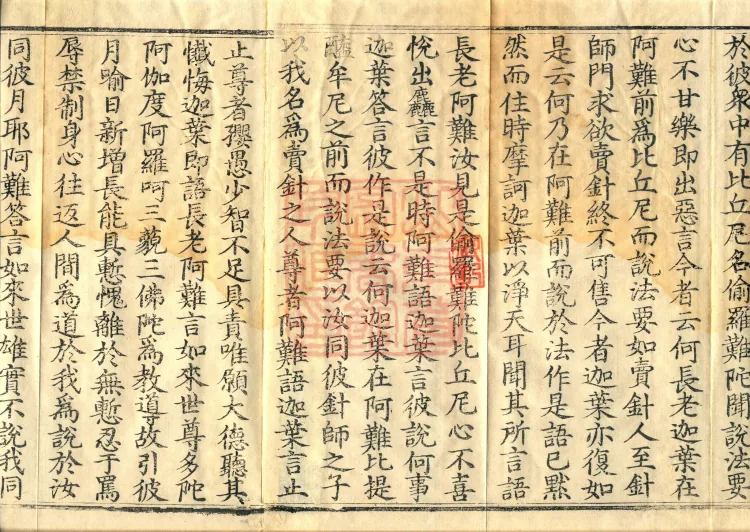 於彼衆中有比丘尼名偷羅難陀聞說法要
心不甘樂即出惡言今者云何長老迦葉在
阿難前爲比丘尼而說法要如賣針人至針
師門求欲賣針終不可售今者迦葉亦復如
是云何乃在阿難前而說於法作是語已黙
然而住時摩訶迦葉以淨天耳聞其所言語
長老阿難汝見是偷羅難陀比丘尼心不喜
恱出麤言不是時阿難語迦葉言彼說何事
迦葉答言彼作是說云何迦葉在阿難比提
醯牟尼之前而說法要以汝同彼針師之子
以我名爲賣針之人尊者阿難語迦葉言止
止尊者孾愚少智不足具責唯願大德聽其
懺悔迦葉即語長老阿難言如來世尊多陀
阿伽度阿羅呵三藐三佛陀爲教導故引彼
月喻日新增長能具慙愧離於無慙忍于罵
辱禁制身心往返人間爲道於我爲說於汝
同彼月耶阿難答言如來世雄實不說我同